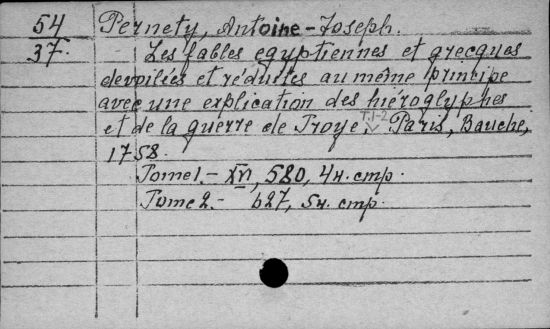 54 Pernety, Antoine-Joseph.
37. Les fables egyptiennes et grecques
devoilées et réduites au même principe
avec une explication des hiéroglyphes
et de la guerre de Troye. T.1-2 Paris, Bauche,
1758.
Tome 1. - XVI, 580, 4н. стр.
Tome 2. - 627, 5н. стр.